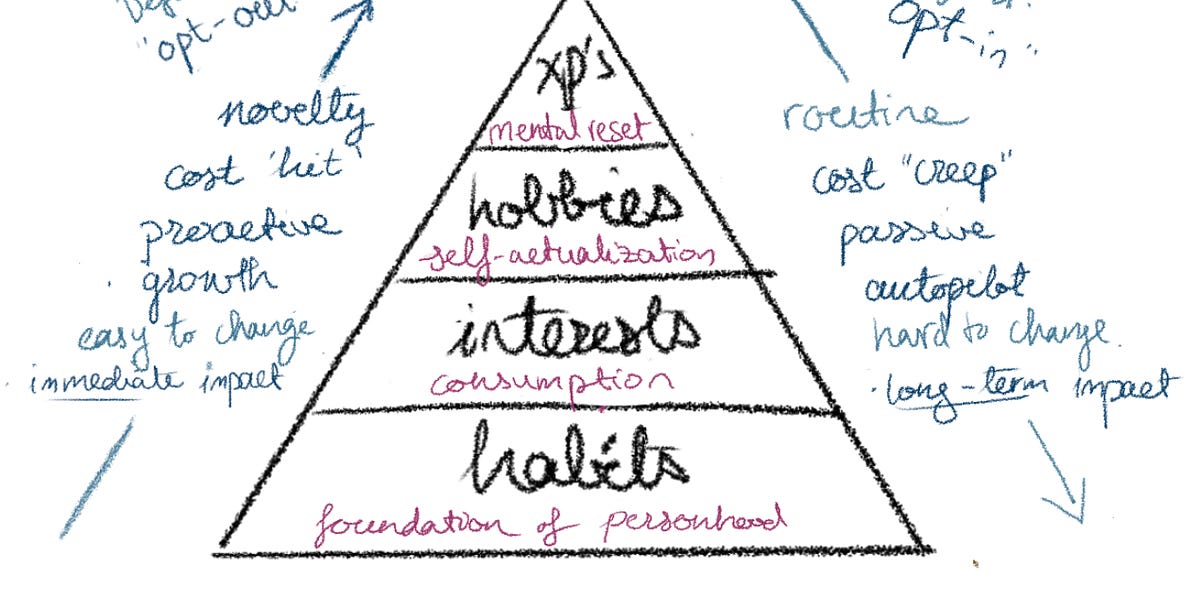 "opt-out"
novelty
cost 'hit'
proactive
growth
easy to change
immediate impact
xp's
mental reset
hobbies
self-actualization
interests
consumption
habits
foundation of personhood
opt-in"
routine
cost "creep"
passive
autopilot
hard to change.
long-term impact